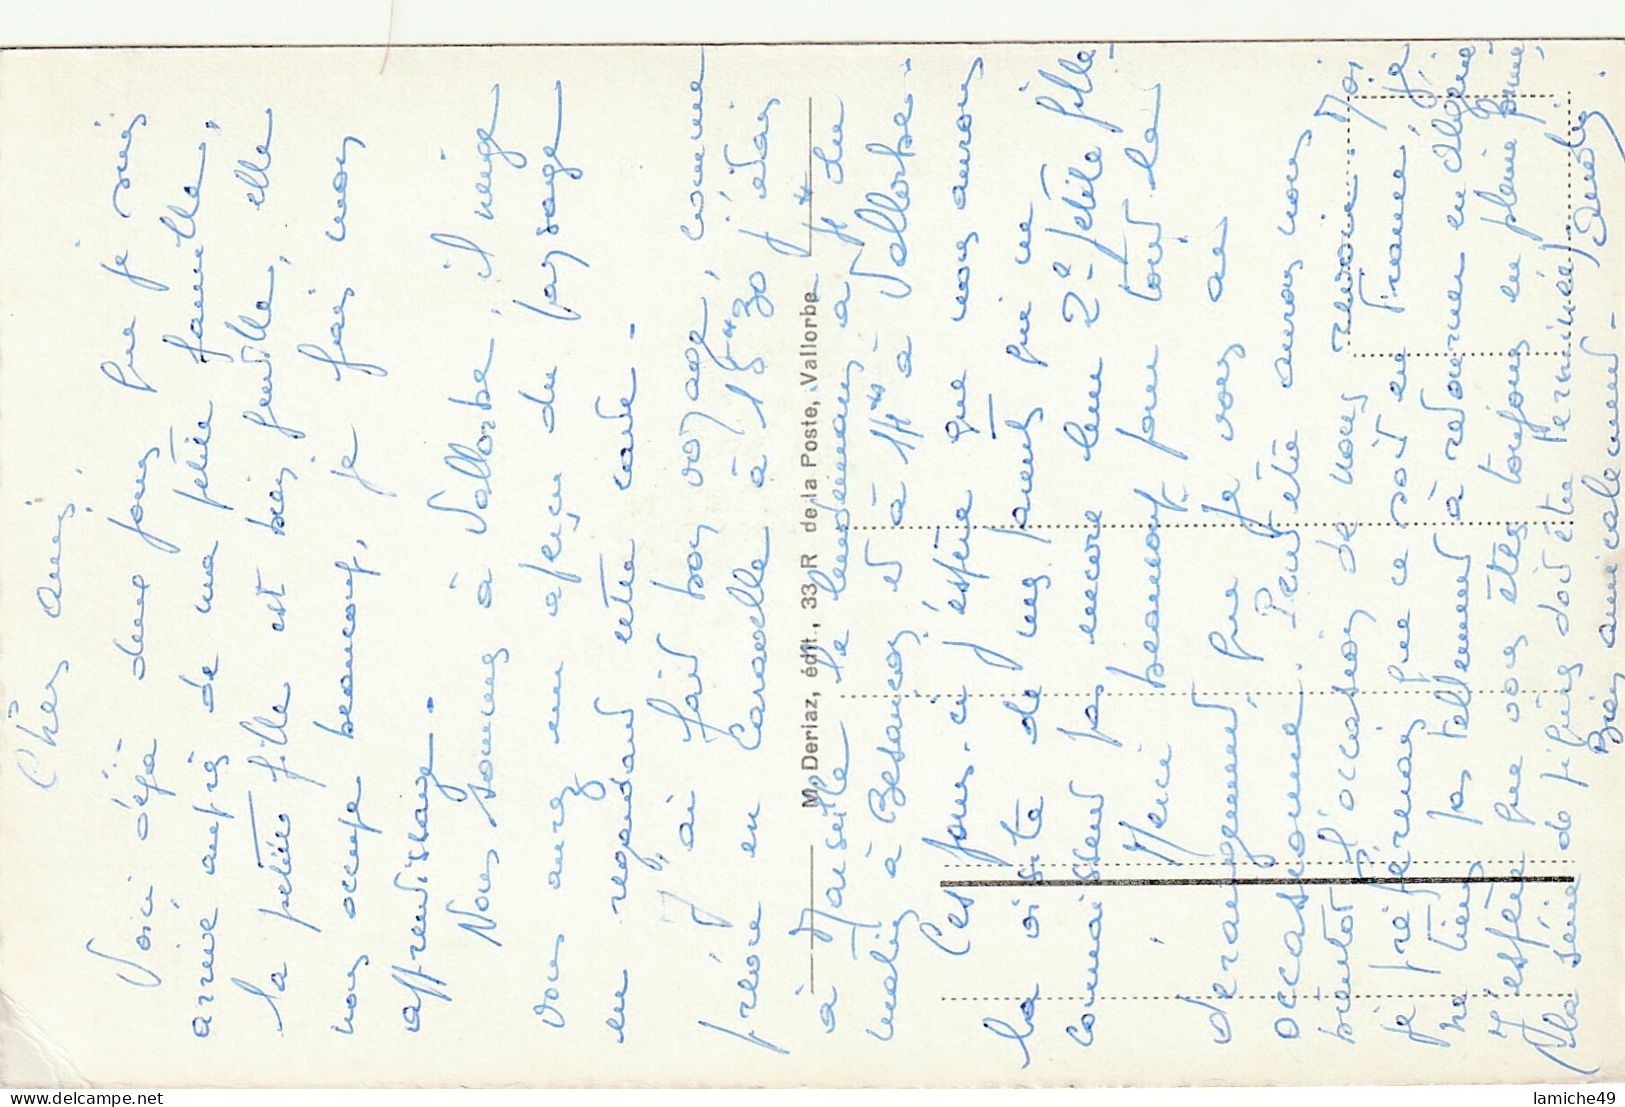 Chers amis,
Voici déjà deux jours que je suis
arrivé auprès de ma petite famille,
la petite fille est bien gentille, elle
nous occupe beaucoup, je fais mon
apprentissage.
Nous sommes à Vallorbe, il neige
vous aurez un aperçu du paysage
en regardant cette carte.
J'ai fait bon voyage, comme
prévu en Caravelle à 18H30 j'étais
à Marseille le lendemain à 7H du
matin à Besançon et à 14H à Vallorbe.
Ces jours-ci j'espère que nous aurons
la visite de mes parents qui ne
connaissent pas encore leur 2e petite fille.
Merci beaucoup pour tout le
dérangement, que je vous ai
occasionné. Peut être aurons nous
bientôt l'occasion de nous revoir. Moi
je préférerais que ce soit en France, je
ne tiens pas tellement à retourner en Algérie.
J'espère que vous êtes toujours en pleine forme,
la série de piqûres doit être terminée.
Bien amicalement.
M. Deriaz, édit., 33 R de la Poste, Vallorbe
lamiche49